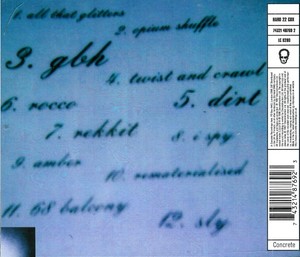 1. all that glitters
2. opium shuffle
3. gbh
4. twist and crawl
5. dirt
6. rocco
7. rekkit
8. i spy
9. amber
10. rematerialised
11. 68 balcony
12. sly
HARD 22 CDR
Concrete